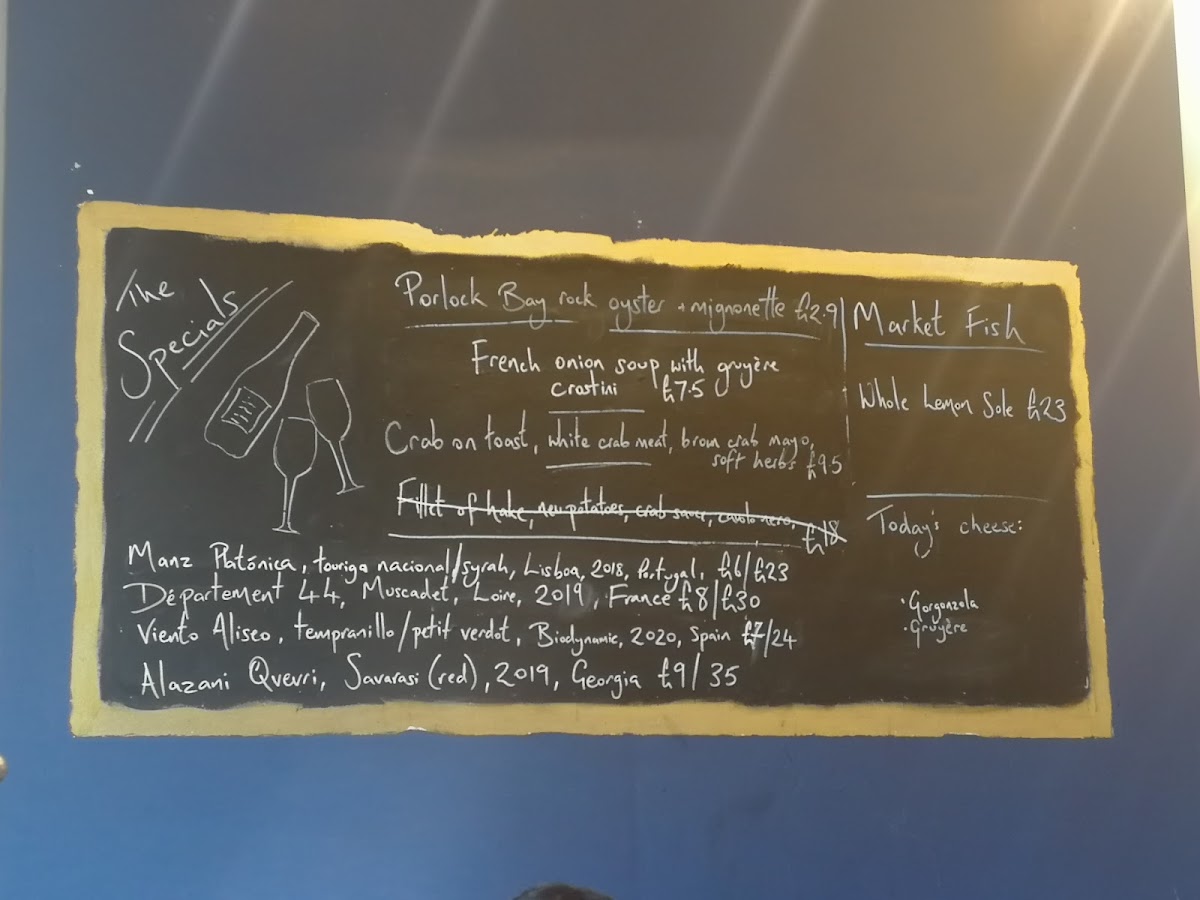 The
Specials
Porlock Bay rock oyster + mignonette £2.9
French onion soup with gruyère
crostini £7.5
Crab on toast, white crab meat, brown crab mayo,
soft herbs £9.5
Fillet of hake, new potatoes, crab sauce, cavolo nero,
£18
Manz Platónica, touriga nacional/syrah, Lisboa, 2018, Portugal, £6/£23
Département 44, Muscadet, Loire, 2019, France £8/£30
Viento Aliseo, tempranillo/petit verdot, Biodynamic, 2020, Spain £7/24
Alazani Qvevri, Savarasi (red), 2019, Georgia £9/35
Market Fish
Whole Lemon Sole £23
Today's cheese:
· Gorgonzola
· Gruyère